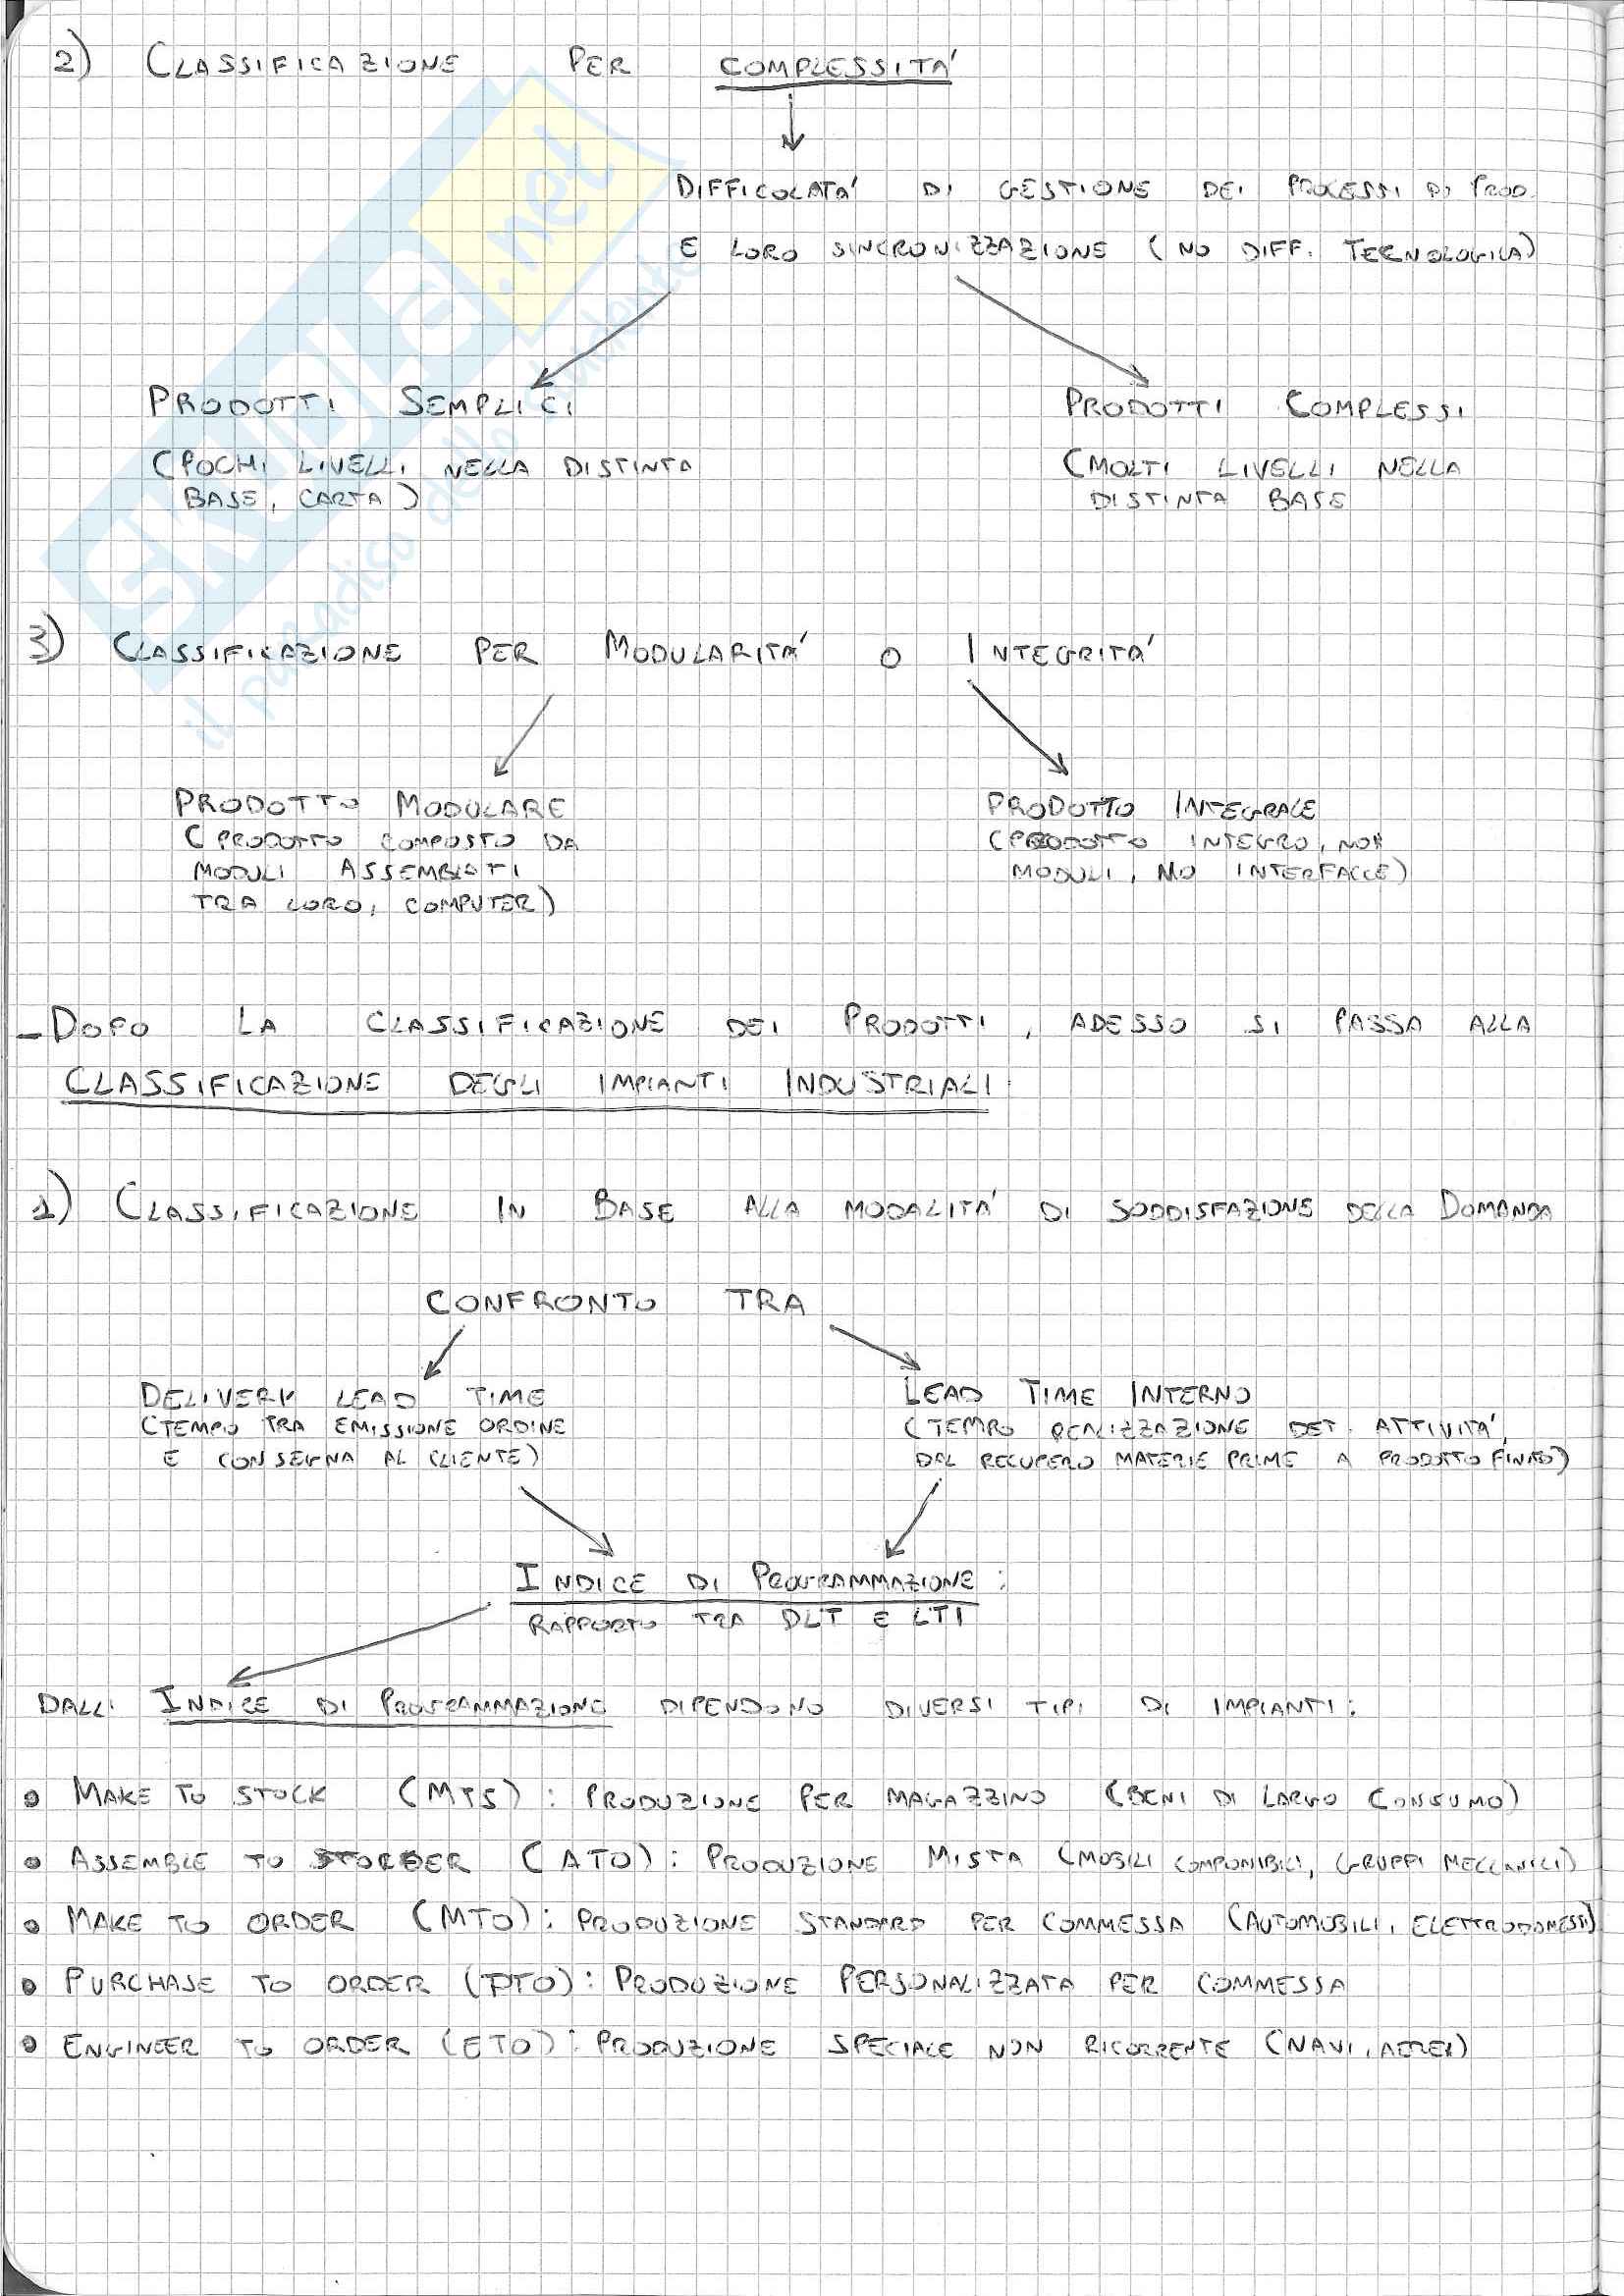 2) CLASSIFICAZIONE PER COMPLESSITA'
DIFFICOLATA' DI GESTIONE DEI PROCESSI DI PROD.
E LORO SINCRONIZZAZIONE (NO DIFF. TECNOLOGICA)
PRODOTTI SEMPLICI
(POCHI LIVELLI NELLA DISTINTA
BASE, CARTA)
PRODOTTI COMPLESSI
(MOLTI LIVELLI NELLA
DISTINTA BASE
3) CLASSIFICAZIONE PER MODULARITA' O INTEGRITA'
PRODOTTO MODULARE
(PRODOTTO COMPOSTO DA
MODULI ASSEMBLATI
TRA LORO, COMPUTER)
PRODOTTO INTEGRALE
(PRODOTTO INTEGRO, NON
MODULI, NO INTERFACCE)
- DOPO LA CLASSIFICAZIONE DEI PRODOTTI, ADESSO SI PASSA ALLA
CLASSIFICAZIONE DEGLI IMPIANTI INDUSTRIALI
1) CLASSIFICAZIONE IN BASE ALLA MODALITA' DI SODDISFAZIONE DELLA DOMANDA
CONFRONTO TRA
DELIVERY LEAD TIME
(TEMPO TRA EMISSIONE ORDINE
E CONSEGNA AL CLIENTE)
LEAD TIME INTERNO
(TEMPO REALIZZAZIONE DET. ATTIVITA',
DAL RECUPERO MATERIE PRIME A PRODOTTO FINITO)
INDICE DI PROGRAMMAZIONE:
RAPPORTO TRA DLT E LTI
DALL' INDICE DI PROGRAMMAZIONE DIPENDONO DIVERSI TIPI DI IMPIANTI:
• MAKE TO STOCK (MTS): PRODUZIONE PER MAGAZZINO (BENI DI LARGO CONSUMO)
• ASSEMBLE TO ORDER (ATO): PRODUZIONE MISTA (MOBILI COMPONIBILI, GRUPPI MECCANICI)
• MAKE TO ORDER (MTO): PRODUZIONE STANDARD PER COMMESSA (AUTOMOBILI, ELETTRODOMESTI)
• PURCHASE TO ORDER (PTO): PRODUZIONE PERSONALIZZATA PER COMMESSA
• ENGINEER TO ORDER (ETO): PRODUZIONE SPECIALE NON RICORRENTE (NAVI, AEREI)
SKUOLA.net
il paradiso dello studente